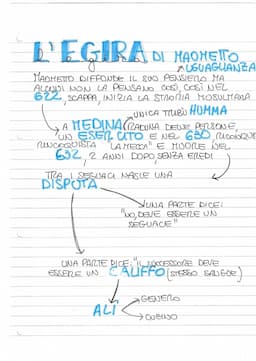 L'EGIRA DI MAOMETTO
UGUAGLIANZA
MAOMETTO DIFFONDE IL SUO PENSIERO MA
ALCUNI NON LA PENSANO COSÌ, COSÌ NEL
622, SCAPPA, INIZIA LA STORIA MUSULMANA
UNICA TRIBÙ HUMMA
A MEDINA (RADUNA DELLE PERSONE,
UN ESERCITO E NEL 630 RICONQUISTA
"LA MECCA" E MUORE NEL
632, 2 ANNI DOPO, SENZA EREDI
TRA I SEGUACI NASCE UNA
DISPUTA
UNA PARTE DICE:
"NO, DEVE ESSERE UN
SEGUACE"
UNA PARTE DICE: "IL SUCCESSORE DEVE
ESSERE UN CALIFFO (STESSO SANGUE)
ALÌ
GENERO
CUGINO